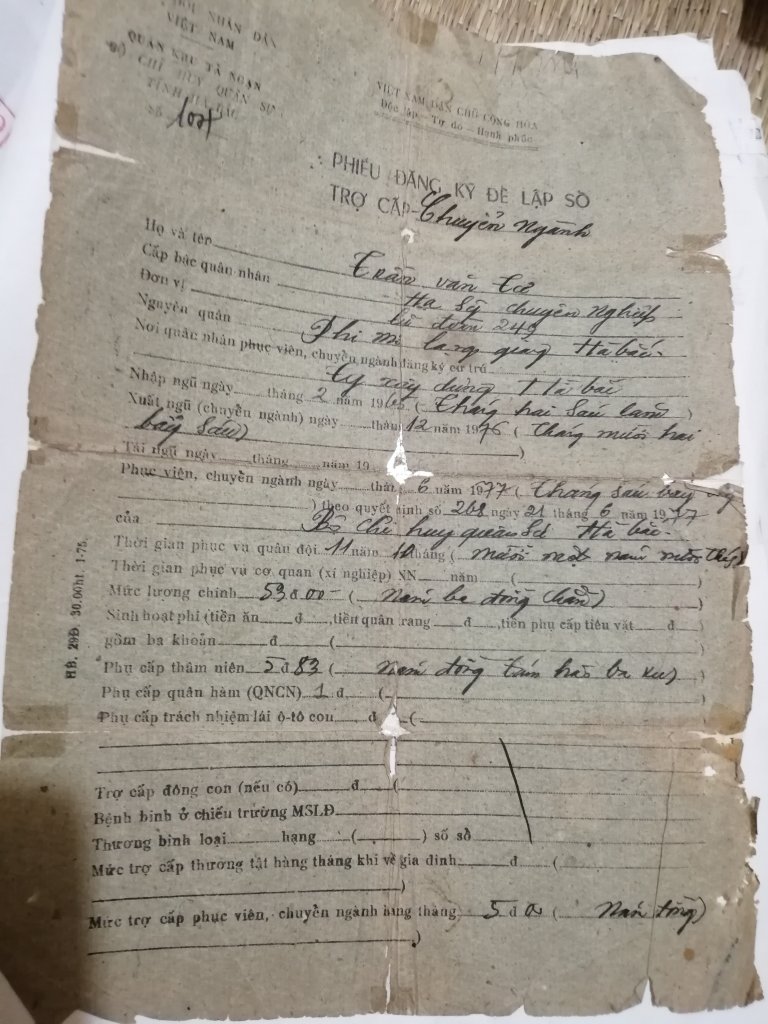 ĐỘI NHÂN DÂN
VIỆT NAM
QUÂN KHU TẢ NGẠN
BỘ CHỈ HUY QUÂN SỰ
TỈNH HÀ BẮC
Số 104
VIỆT NAM DÂN CHỦ CỘNG HÒA
Độc lập - Tự do - Hạnh phúc
PHIẾU ĐĂNG KÝ ĐỂ LẬP SỔ
TRỢ CẤP Chuyển Ngành
Họ và tên Trần văn
Cấp bậc quân nhân Hạ sỹ chuyên Nghiệp
Đơn vị lữ đoàn
Nguyên quán Phi mô lạng giang Hà bắc
Nơi quân nhân phục viên, chuyển ngành đăng ký cư trú
Ty xây dựng Hà bắc
Nhập ngũ ngày tháng 2 năm 1965 ( Tháng hai Sáu lăm )
Xuất ngũ (chuyển ngành) ngày tháng 12 năm 1976 ( tháng mười hai
bảy sáu)
Tái ngũ ngày tháng năm 19
Phục viên, chuyển ngành ngày tháng 6 năm 1977 ( tháng sáu bảy bảy
) theo quyết định số 268 ngày 21 tháng 6 năm 1977
của Bộ chỉ huy quân sự Hà bắc
Thời gian phục vụ quân đội 11 năm 10 tháng ( mười một năm mười tháng)
Thời gian phục vụ cơ quan (xí nghiệp) NN năm ( )
Mức lương chính 53đ00 ( Năm ba đồng chẵn)
Sinh hoạt phí (tiền ăn đ ,tiền quân trang đ ,tiền phụ cấp tiêu vặt đ )
gồm ba khoản đ ( )
Phụ cấp thâm niên 5đ83 ( năm đồng tám hào ba xu)
Phụ cấp quân hàm (QNCN) 1 đ. ( )
Phụ cấp trách nhiệm lái ô-tô con đ (
Trợ cấp đông con (nếu có) đ (
Bệnh binh ở chiến trường MSLĐ
Thương binh loại hạng ( ) số sổ
Mức trợ cấp thương tật hàng tháng khi về gia đình đ (
)
Mức trợ cấp phục viên, chuyển ngành hàng tháng 5đ00 ( Năm đồng)
)
HB. 29Đ 30.00ht. 1-75.